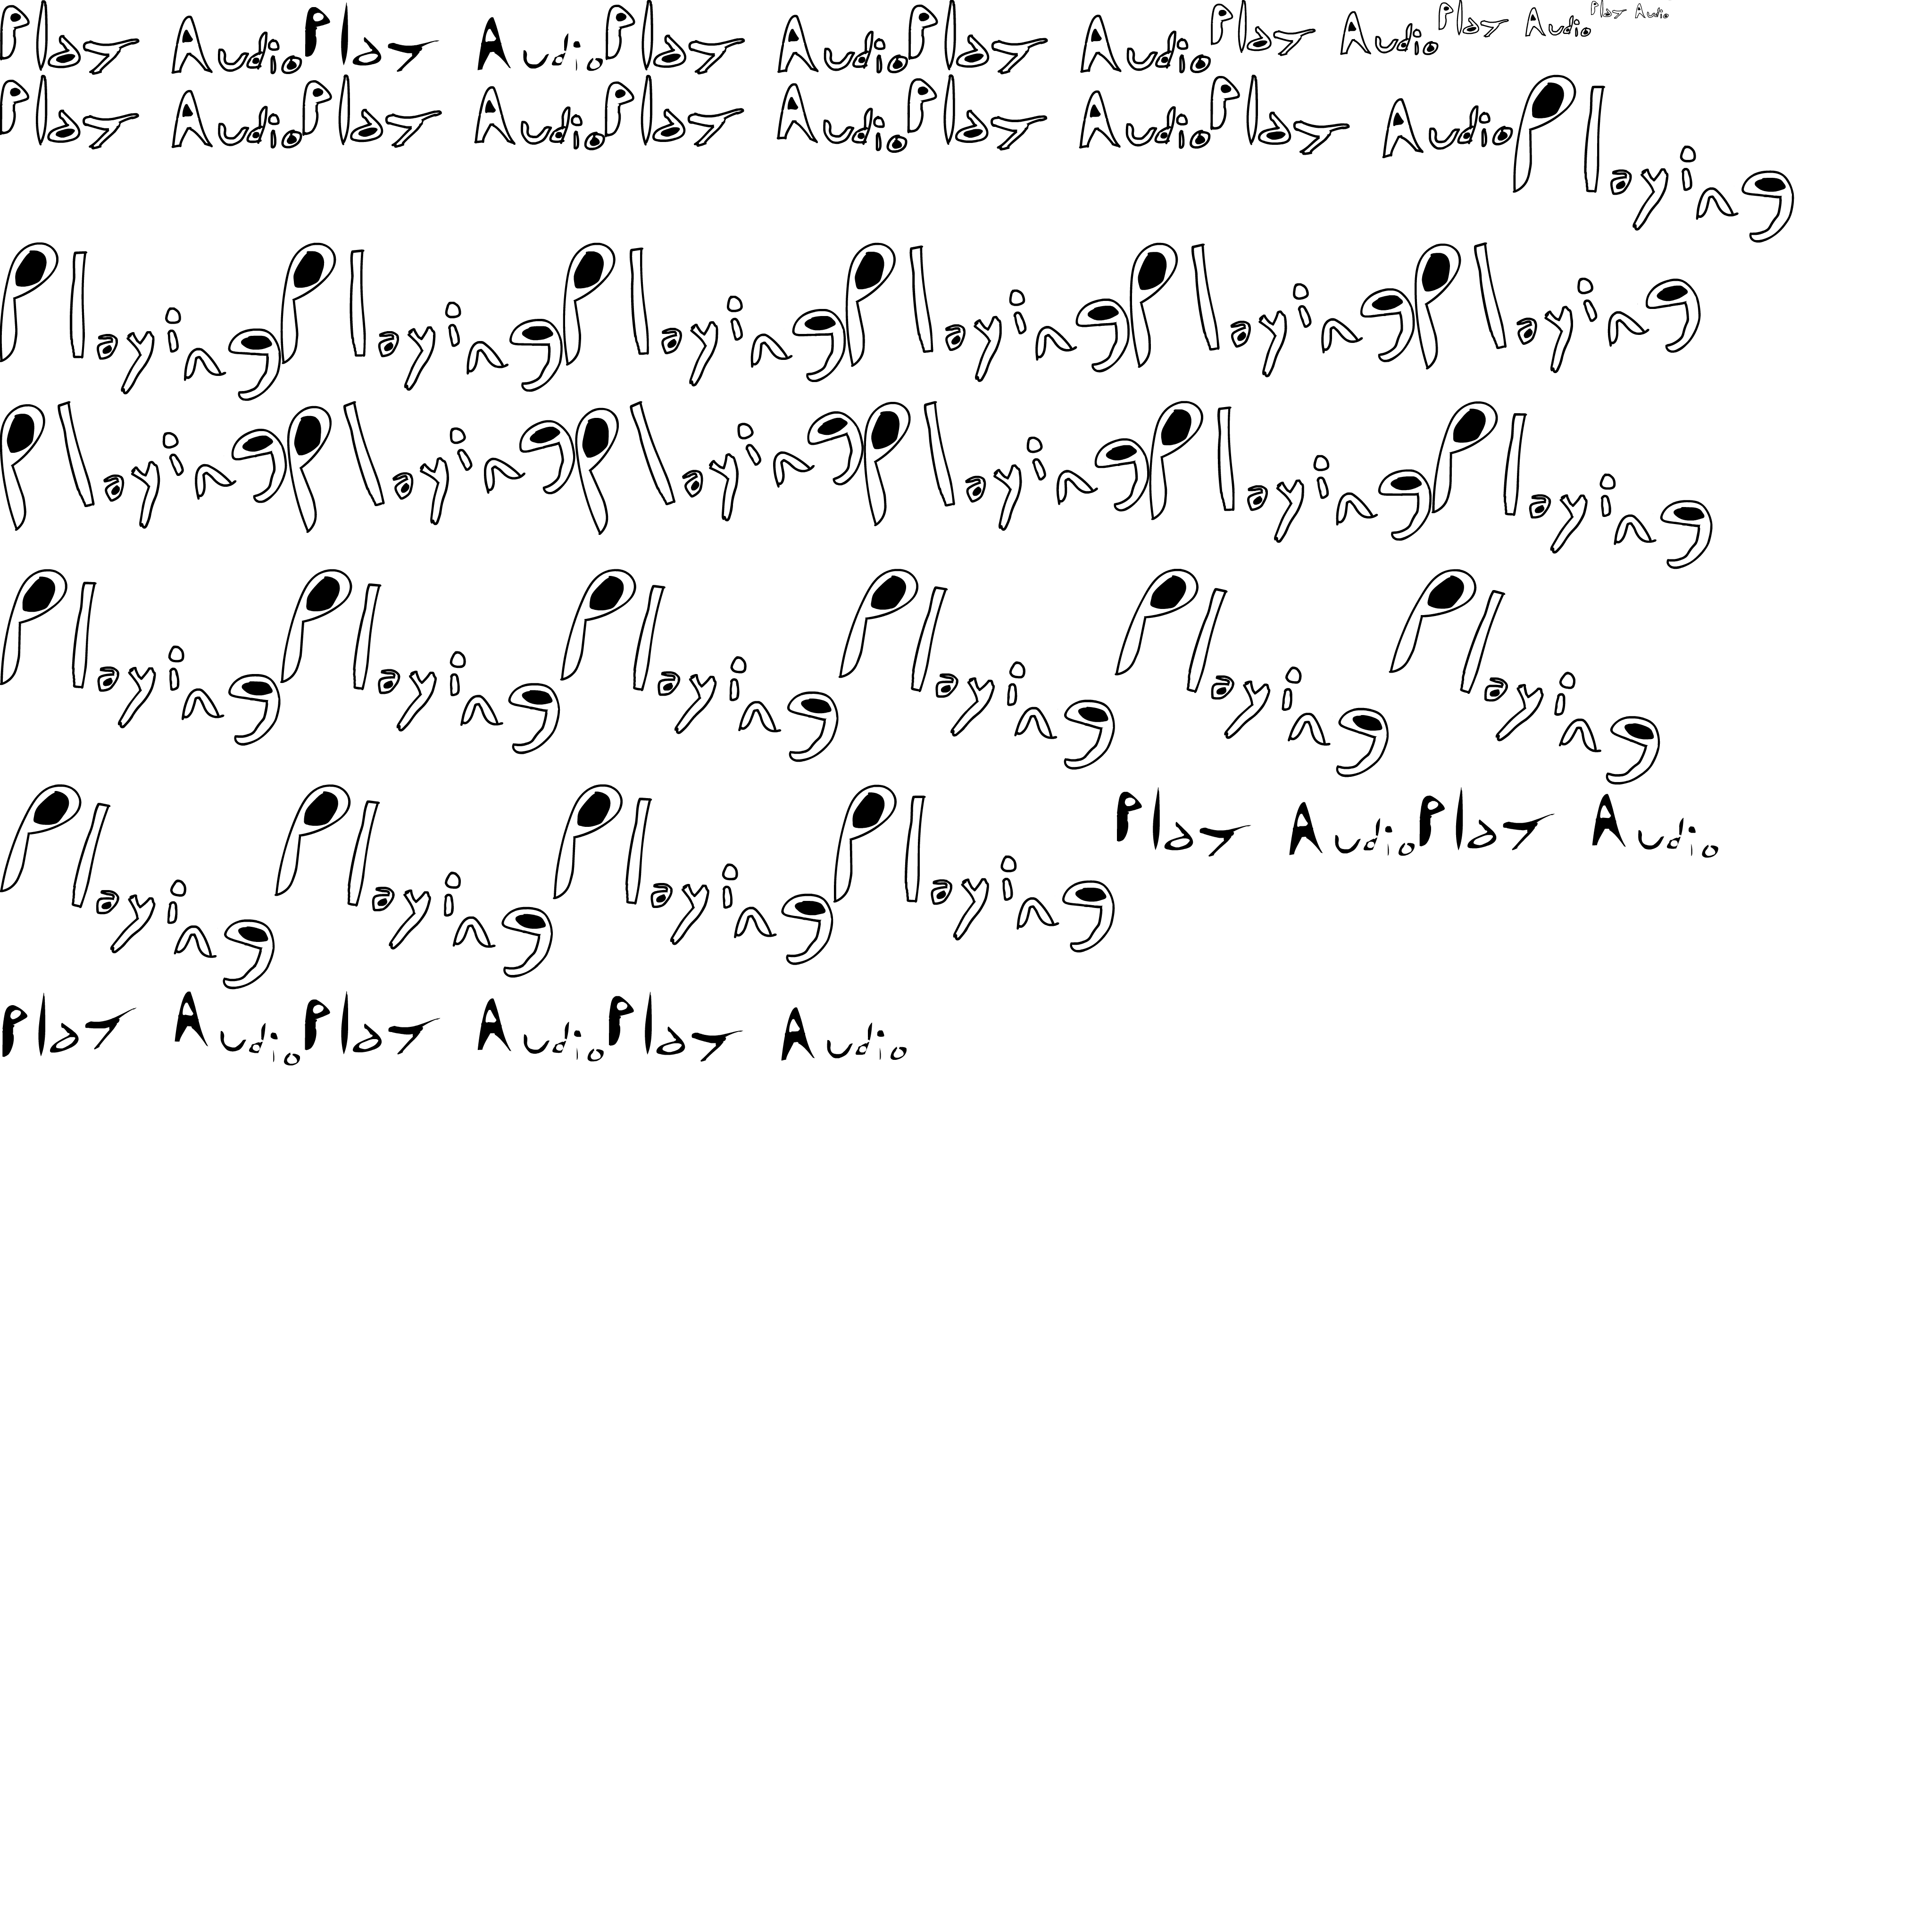 Play Audio Play Audio Play Audio Play Audio Play Audio Play Audio Play Audio
Play Audio Play Audio Play Audio Play Audio Play Audio Playing
Playing Playing Playing Playing Playing Playing
Playing Playing Playing Playing Playing Playing
Playing Playing Playing Playing Playing Playing
Playing Playing Playing Playing Play Audio Play Audio
Play Audio Play Audio Play Audio